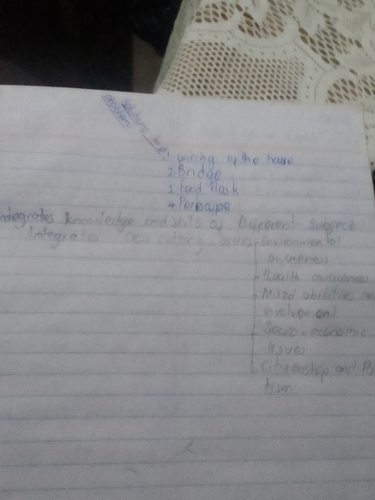 1 wiring of the house
2. Bridge
3. Food flask
4. Periscope
integrates knowledge and skills of Different subject
Integrates cross cutting issues
- Environmental
awareness
- Health awareness
- Mixed abilities
involvement
- Socio-economic
Issues
- Citizenship and
tism